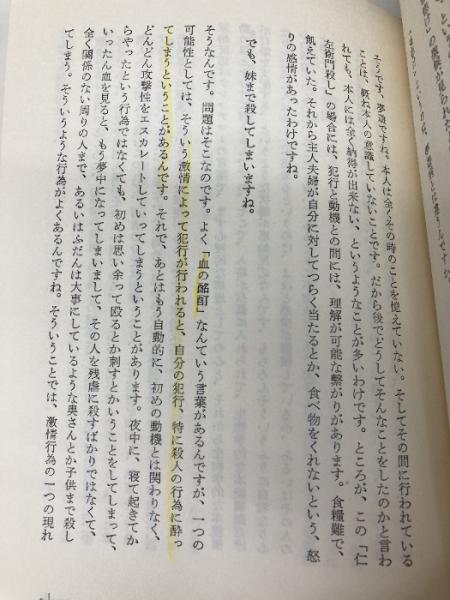 そうです、夢遊ですね。本人は全くその時のことを憶えていない。そしてその間に行われている
ことは、概ね本人の意識していないことです。だから後でどうしてそんなことをしたのかと言わ
れても、本人には全く納得が出来ない、というようなことが多いわけです。ところが、この「仁
左衛門殺し」の場合には、犯行と動機との間には、理解が可能な繫がりがあります。食糧難で、
飢えていた。それから主人夫婦が自分に対してつらく当たるとか、食べ物をくれないという、怒
りの感情があったわけですね。
でも、妹まで殺してしまいますね。
そうなんです。問題はそこなのです。よく「血の酩酊」なんていう言葉があるんですが、一つの
可能性としては、そういう激情によって犯行が行われると、自分の犯行、特に殺人の行為に酔っ
てしまうということがあるんです。それで、あとはもう自動的に、初めの動機とは関わりなく、
どんどん攻撃性をエスカレートしていってしまうということがあります。夜中に、寝て起きてか
らやったという行為ではなくても、初めは思い余って殴るとか刺すとかいうことをしてしまって、
いったん血を見ると、もう夢中になってしまいまして、その人を残虐に殺すばかりではなくて、
全く関係のない周りの人まで、あるいはふだんは大事にしているような奥さんとか子供まで殺し
てしまう。そういうような行為がよくあるんですね。そういうことでは、激情行為の一つの現れ